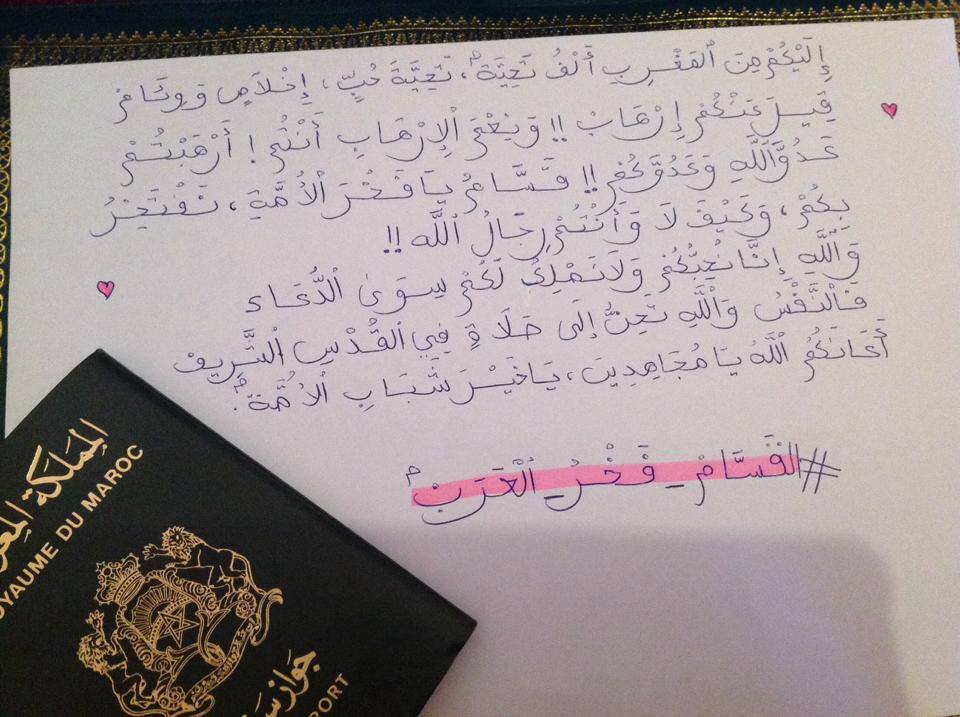 إِلَيْكُمْ مِنَ الْمَغْرِبِ أَلْفُ تَحِيَّة، تَحِيَّةَ حُبٍّ، إِخْلَاصٍ وَوِئَامْ
قِيلَ عَنْكُمْ إِرْهَابْ !! وَنِعْمَ الْإِرْهَابِ أَنْتُمْ ! أَرْهَبْتُمْ
عَدُوَّ اللَّهِ وَعَدُوَّكُمْ !! قَسَّامُ يَا فَخْرَ الْأُمَّةِ، نَفْتَخِرُ
بِكُمْ، وَكَيْفَ لَا وَأَنْتُمْ رِجَالُ اللَّه !!
وَاللَّهِ إِنَّا نُحِبُّكُمْ وَلَا نَمْلِكُ لَكُمْ سِوَى الدُّعَاء
فَالنَّفْسُ وَاللَّهِ تَحِنُّ إِلَى صَلَاةٍ فِي الْقُدْسِ الشَّرِيفْ
أَعَانَكُمُ اللَّهُ يَا مُجَاهِدِينَ، يَا خَيْرَ شَبَابِ الْأُمَّة.
#القَسَّامْ_فَخْرُ_الْعَرَبْ
المملكة المغر
OYAUME DU MAROC
جواز س
PORT